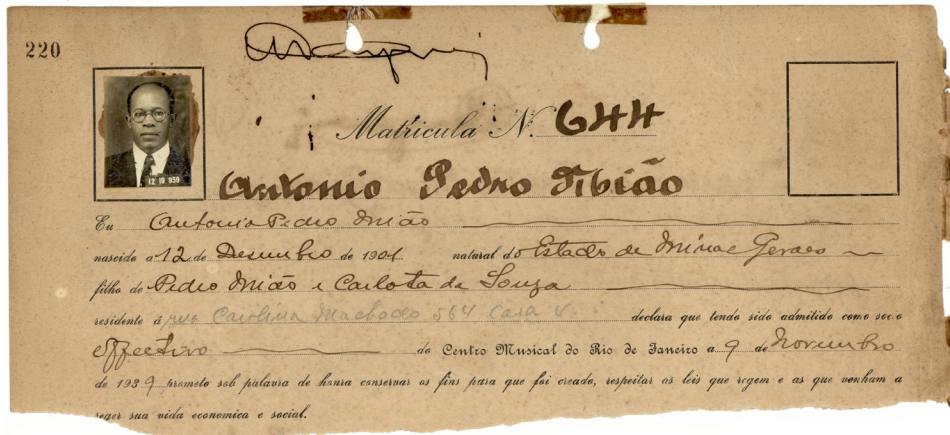 220
Matricula N. 644
12 10 939
Antonio Pedro Tibião
Eu Antonio Pedro
nascido a 12 de Desembro de 1901 natural do Estado de Minas Geraes
filho de Pedro e Carlota de Souza
residente á rua Carolina Machado 564 Casa V. declara que tendo sido admitido como socio
effectivo do Centro Musical do Rio de Janeiro a 9 de Novembro
de 1939 prometo sob palavra de honra conservar os fins para que foi creado, respeitar as leis que regem e as que venham a
reger sua vida economica e social.